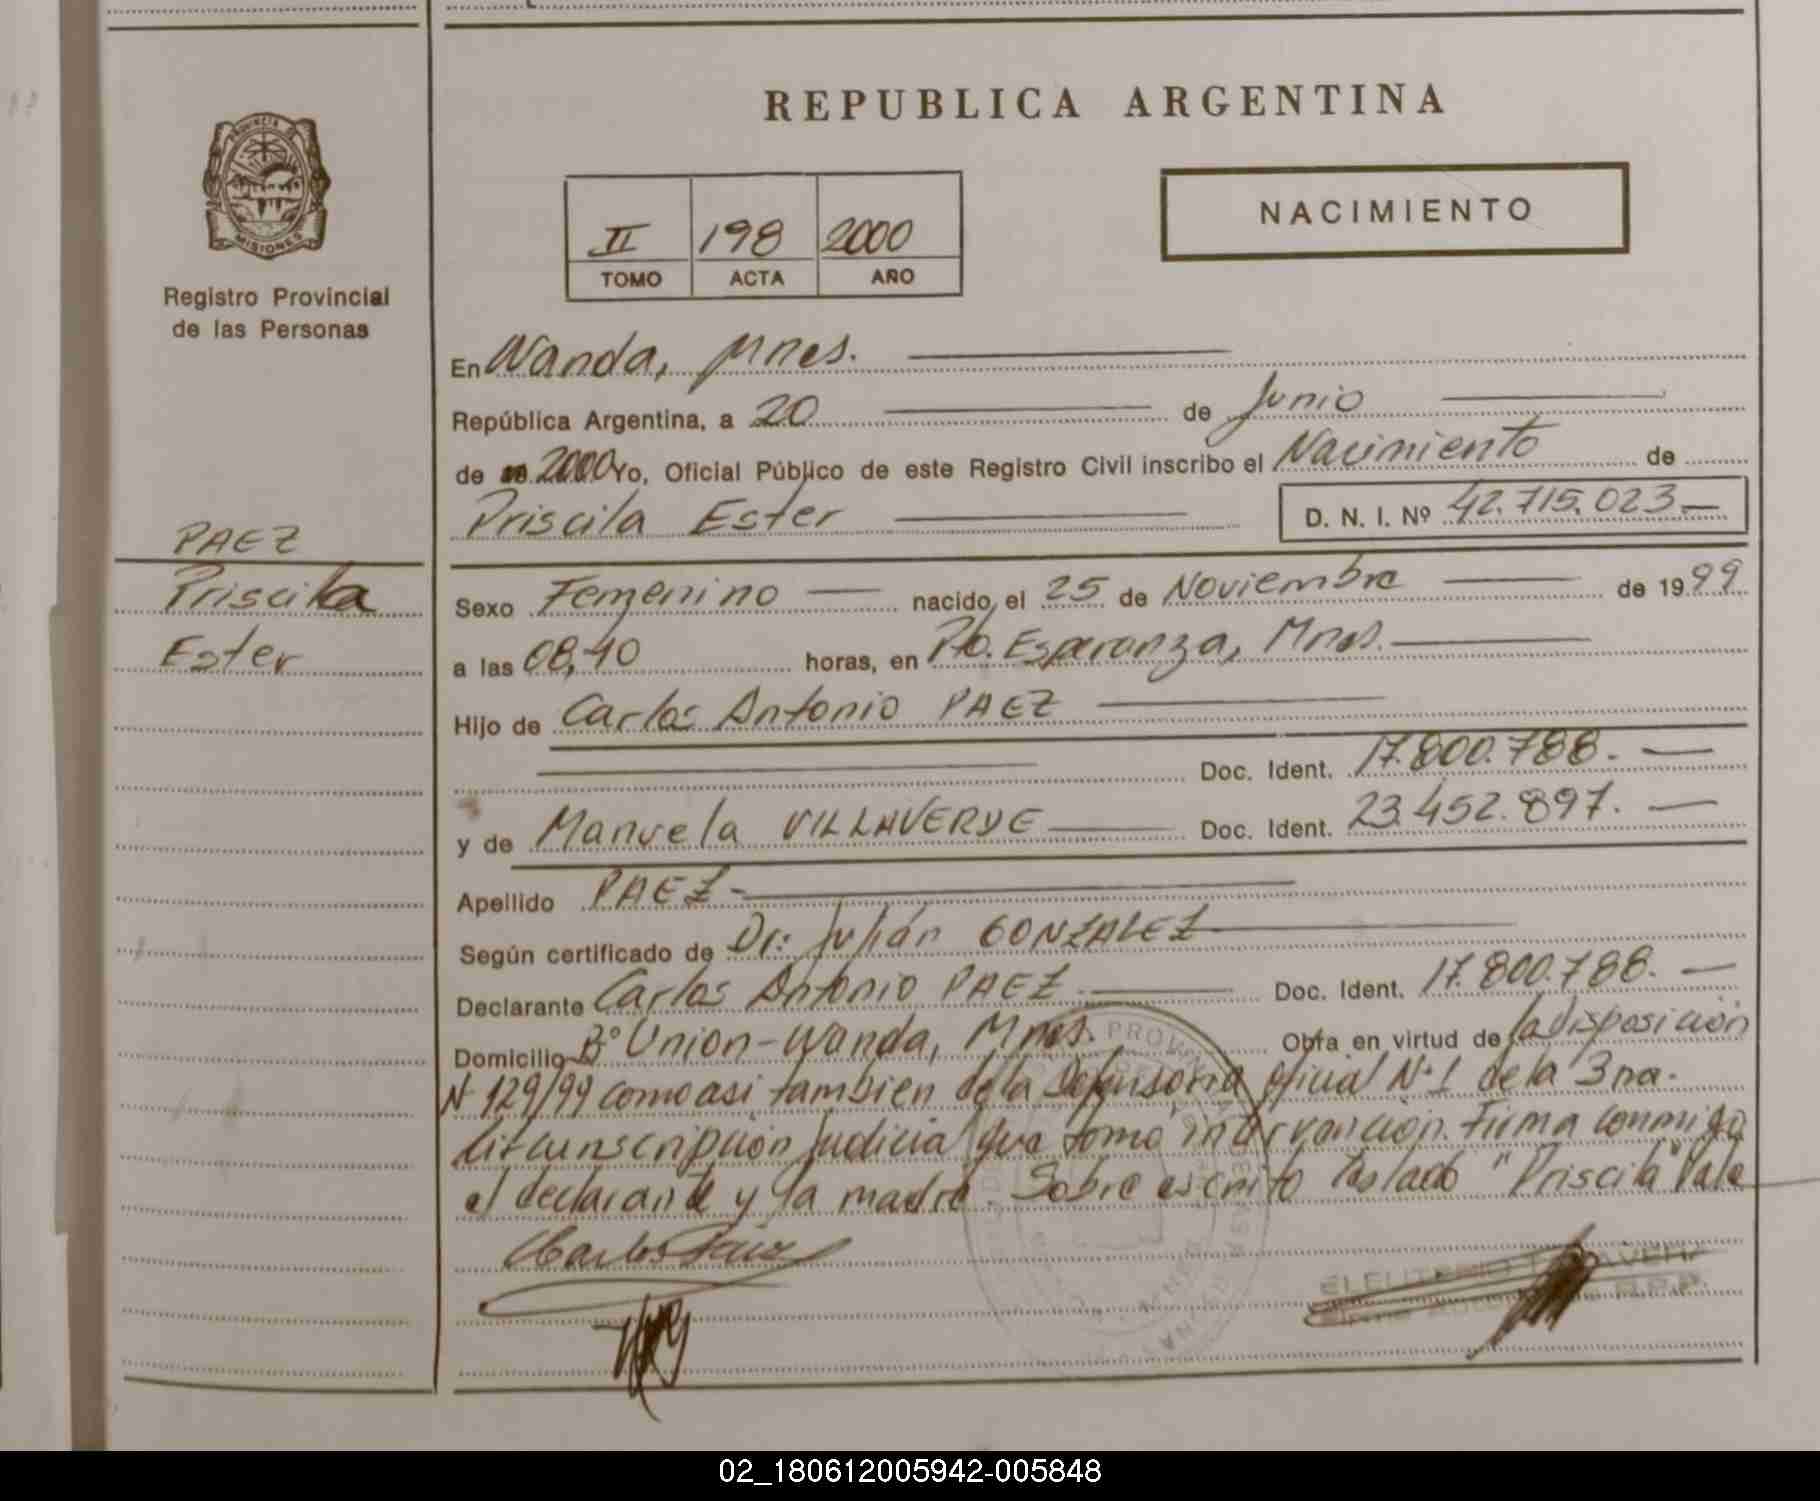 REPUBLICA ARGENTINA
PROVINCIA DE
MISIONES
Registro Provincial
de las Personas
II 198 2000
TOMO ACTA AÑO
NACIMIENTO
En Wanda, Mnes.
República Argentina, a 20 de Junio
de 2000 Yo, Oficial Público de este Registro Civil inscribo el Nacimiento de
Priscila Ester D. N. I. Nº 42.715.023.-
PAEZ
Priscila
Ester
Sexo Femenino nacido, el 25 de Noviembre de 1999
a las 08,40 horas, en Pto. Esperanza, Mnes.
Hijo de Carlos Antonio PAEZ
Doc. Ident. 17.800.788.
y de Manuela VILLAVERDE Doc. Ident. 23.452.897.
Apellido PAEZ-
Según certificado de Dr: Julián GONZALEZ
Declarante Carlos Antonio PAEZ Doc. Ident. 17.800.788.
Domicilio Bº Union-Wanda, Mnes. Obra en virtud de la disposición
Nº 129/99 como asi tambien de la Defensoria oficial Nº1 de la 3ra.
Circunscripción Judicial que tomo intervención. Firma conmigo
el declarante y la madre. Sobre escrito "Priscila" Vale
Carlos Paez
02_180612005942-005848